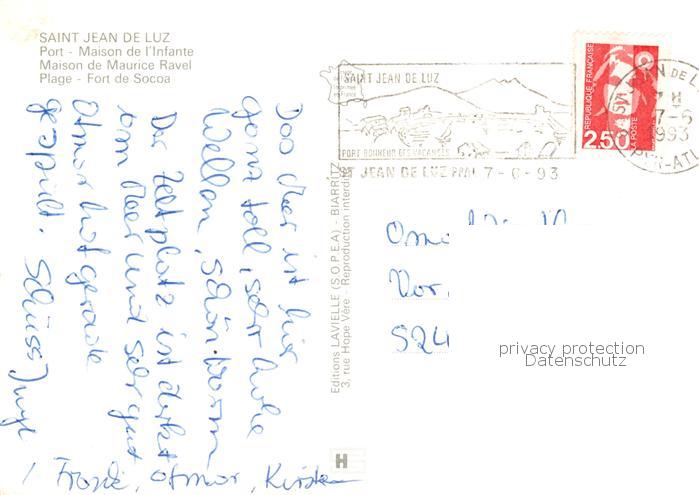 SAINT JEAN DE LUZ
Port - Maison de l'Infante
Maison de Maurice Ravel
Plage - Fort de Socoa
Das Meer ist hier
ganz toll, sehr hohe
Wellen, schön warm
Der Zeltplatz ist direkt
am Meer und sehr gut
Otmar hat gerade
gespült. Tschüss
/ Frank, Otmar, Kirsten
Editions LAVIELLE (S.O.P.E.A.) - BIARRITZ
3, rue Hope Vère - Reproduction interdite
H
SAINT JEAN DE LUZ
PORT BONHEUR DES VACANCES
ST JEAN DE LUZ PPAL 7-6-93
REPUBLIQUE FRANÇAISE
2,50
LA POSTE
JEAN DE L
7-6
1993
Oma
Vor.
524
privacy protection
Datenschutz